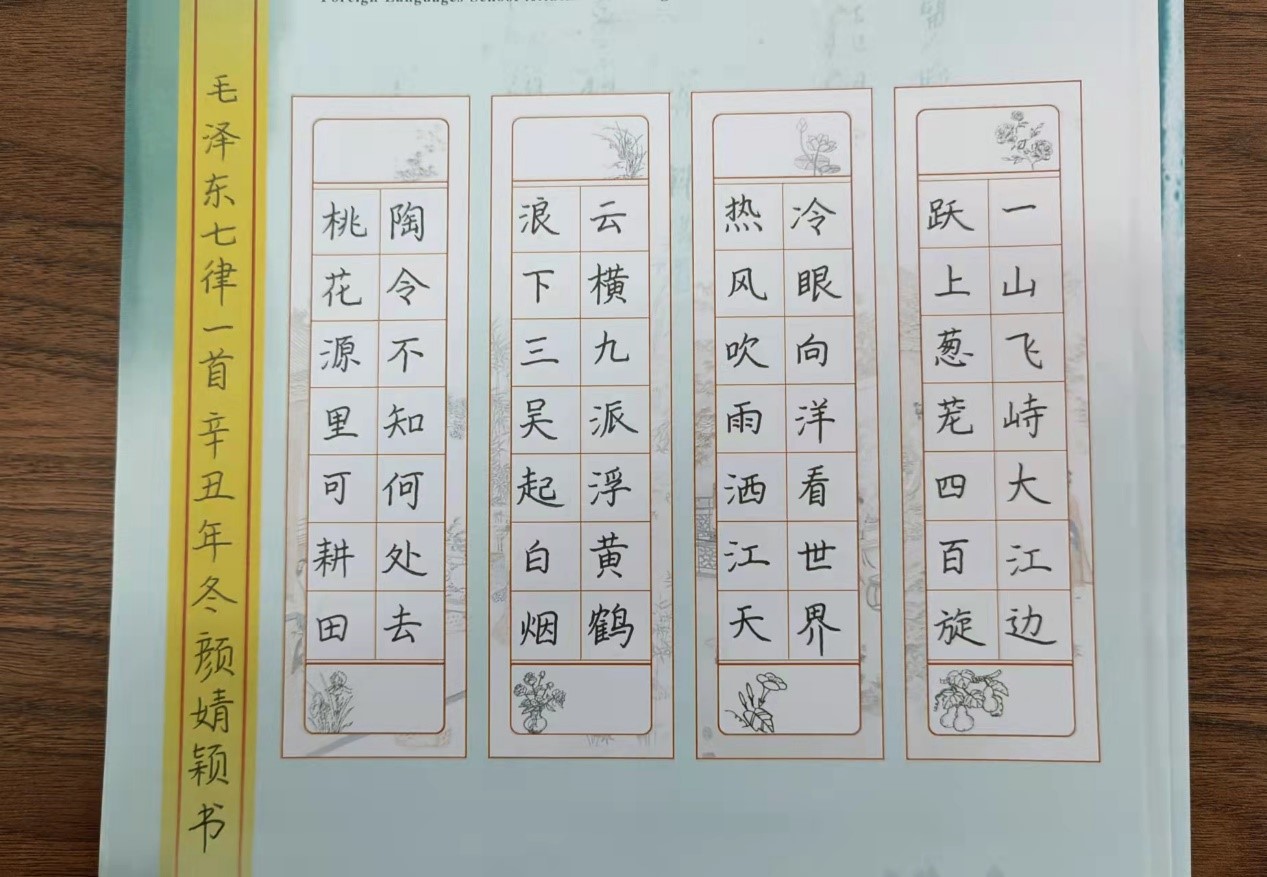 一山飞峙大江边
跃上葱茏四百旋
冷眼向洋看世界
热风吹雨洒江天
云横九派浮黄鹤
浪下三吴起白烟
陶令不知何处去
桃花源里可耕田
毛泽东七律一首辛丑年冬颜婧颖书